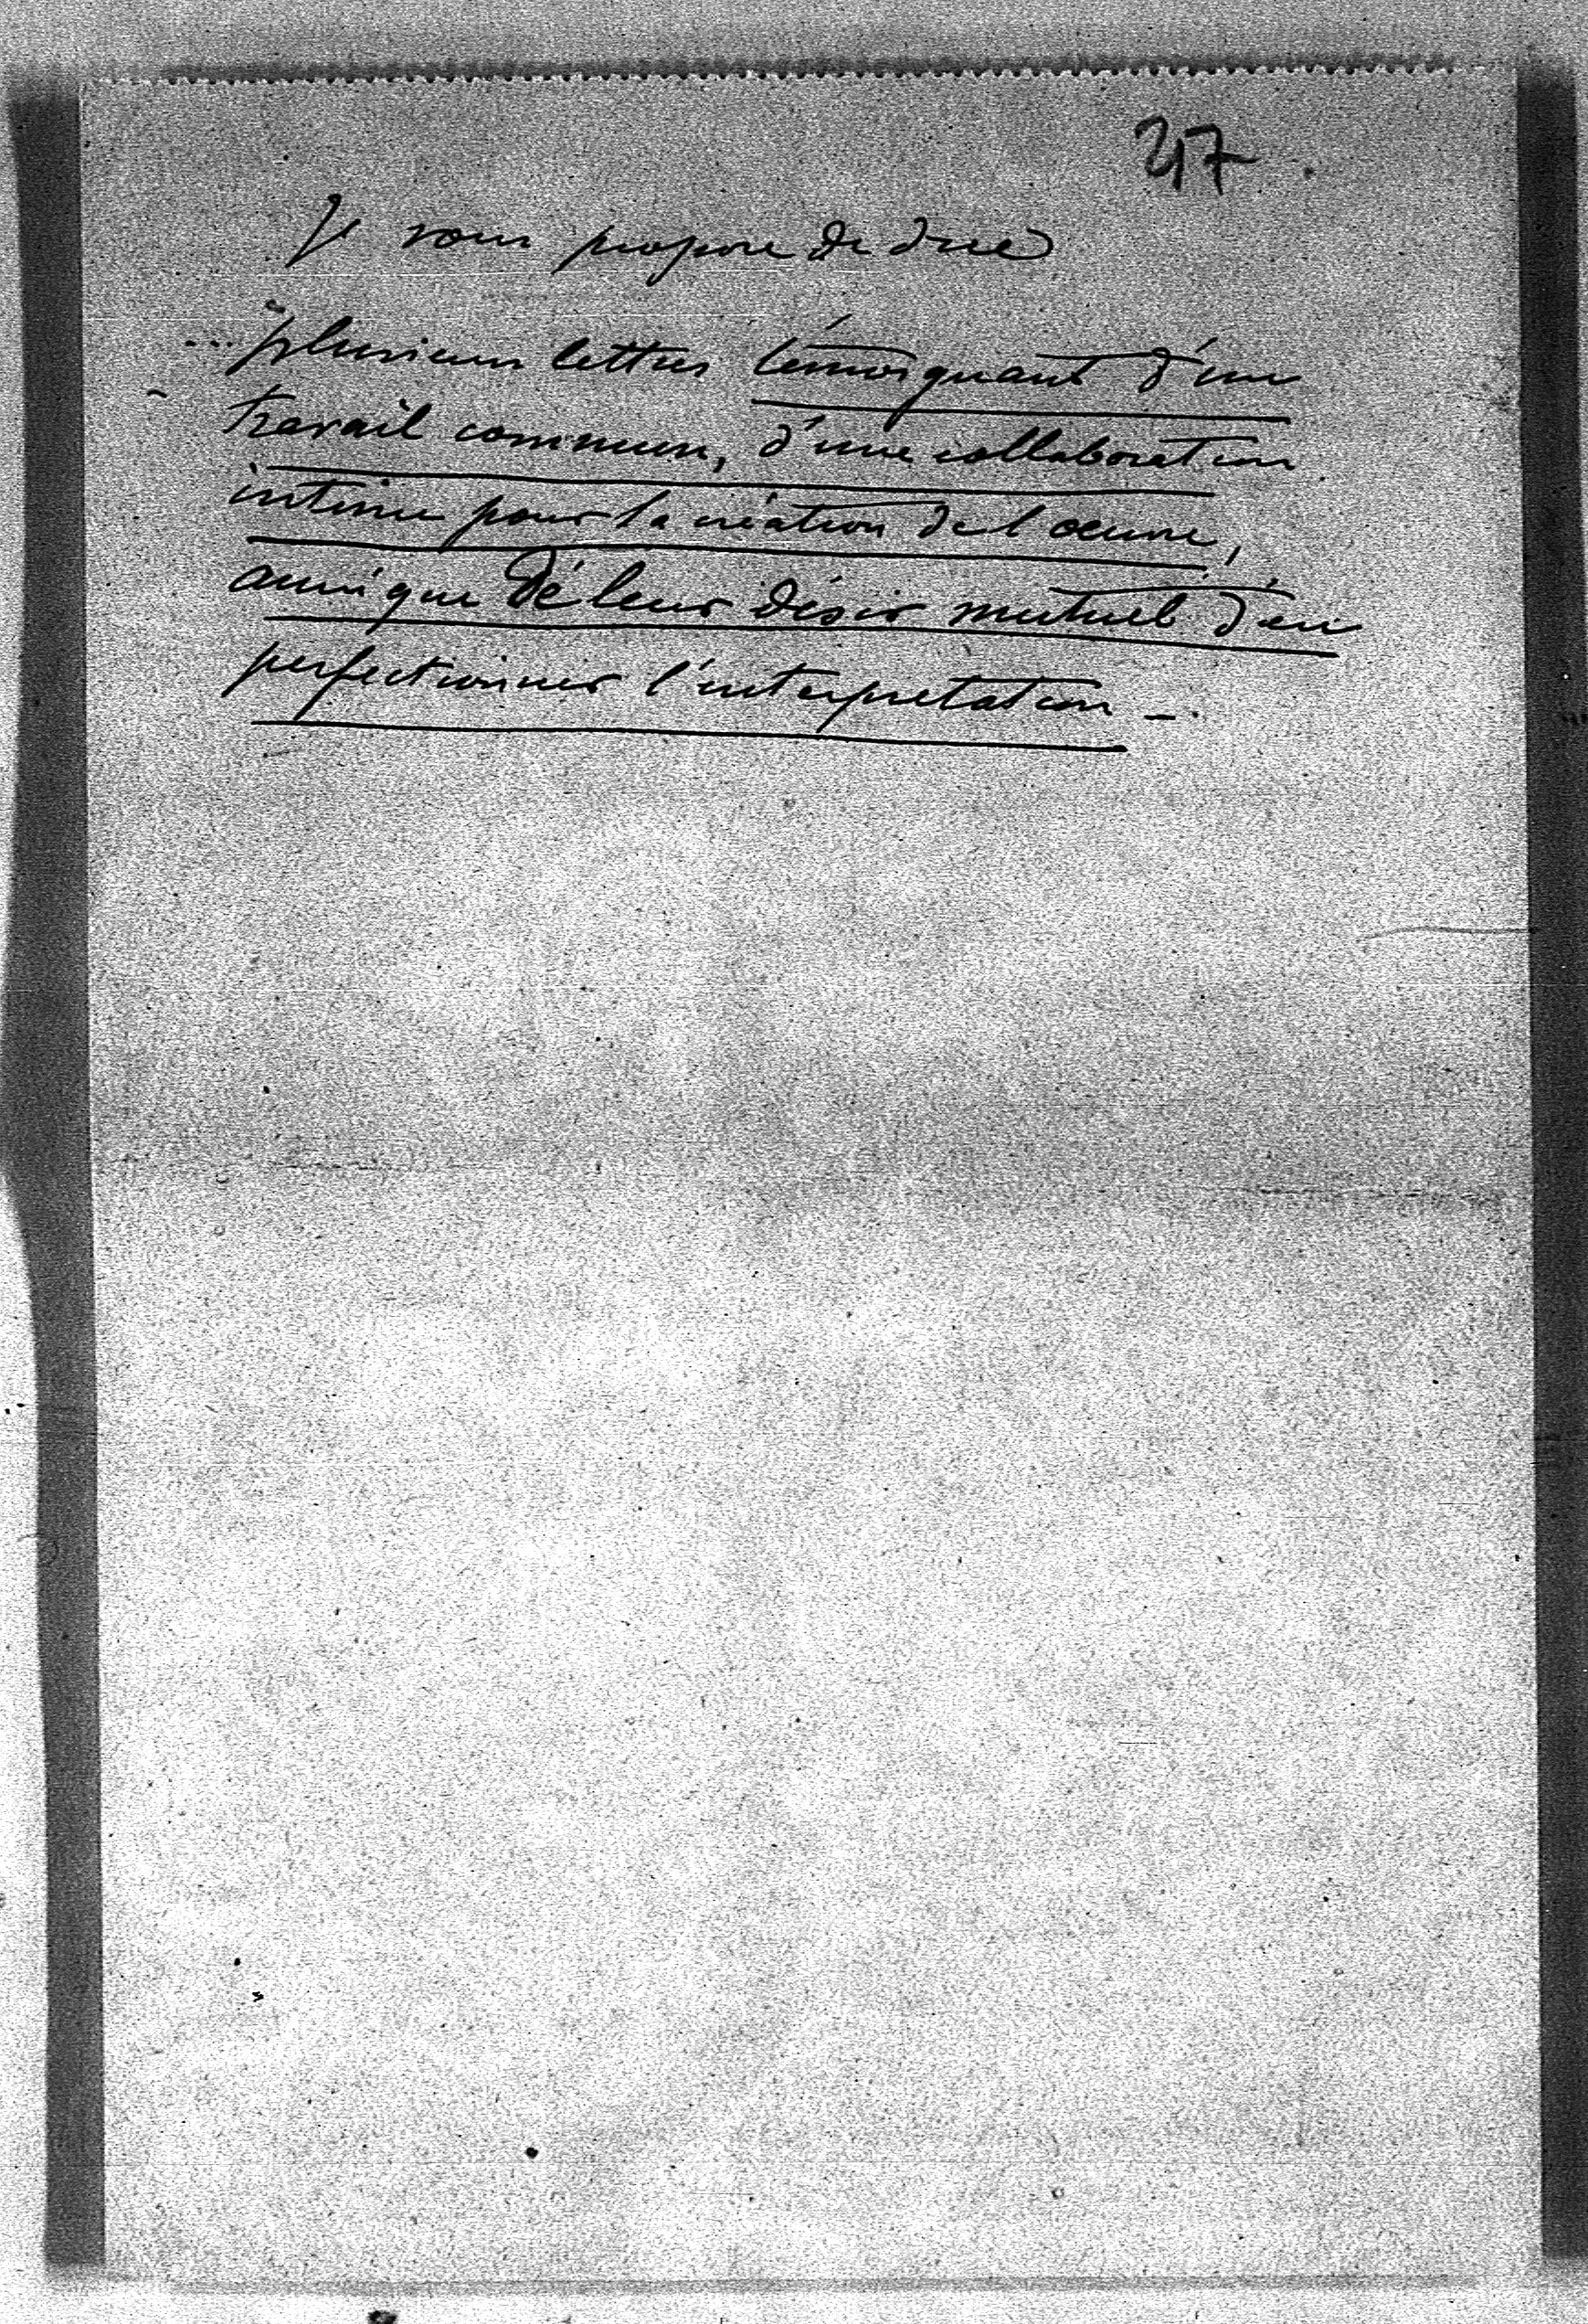 47
Je vous propose de dire
... plusieurs lettres témoignant d'un
travail commun, d'une collaboration
intime pour la création de l'œuvre,
ainsi que de leur désir mutuel d'en
perfectionner l'interprétation -